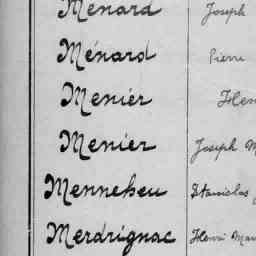 Menard Joseph
Ménard Pierre
Meniér
Meniér Joseph
Menneheu Stanislas
Merdrignac Henri